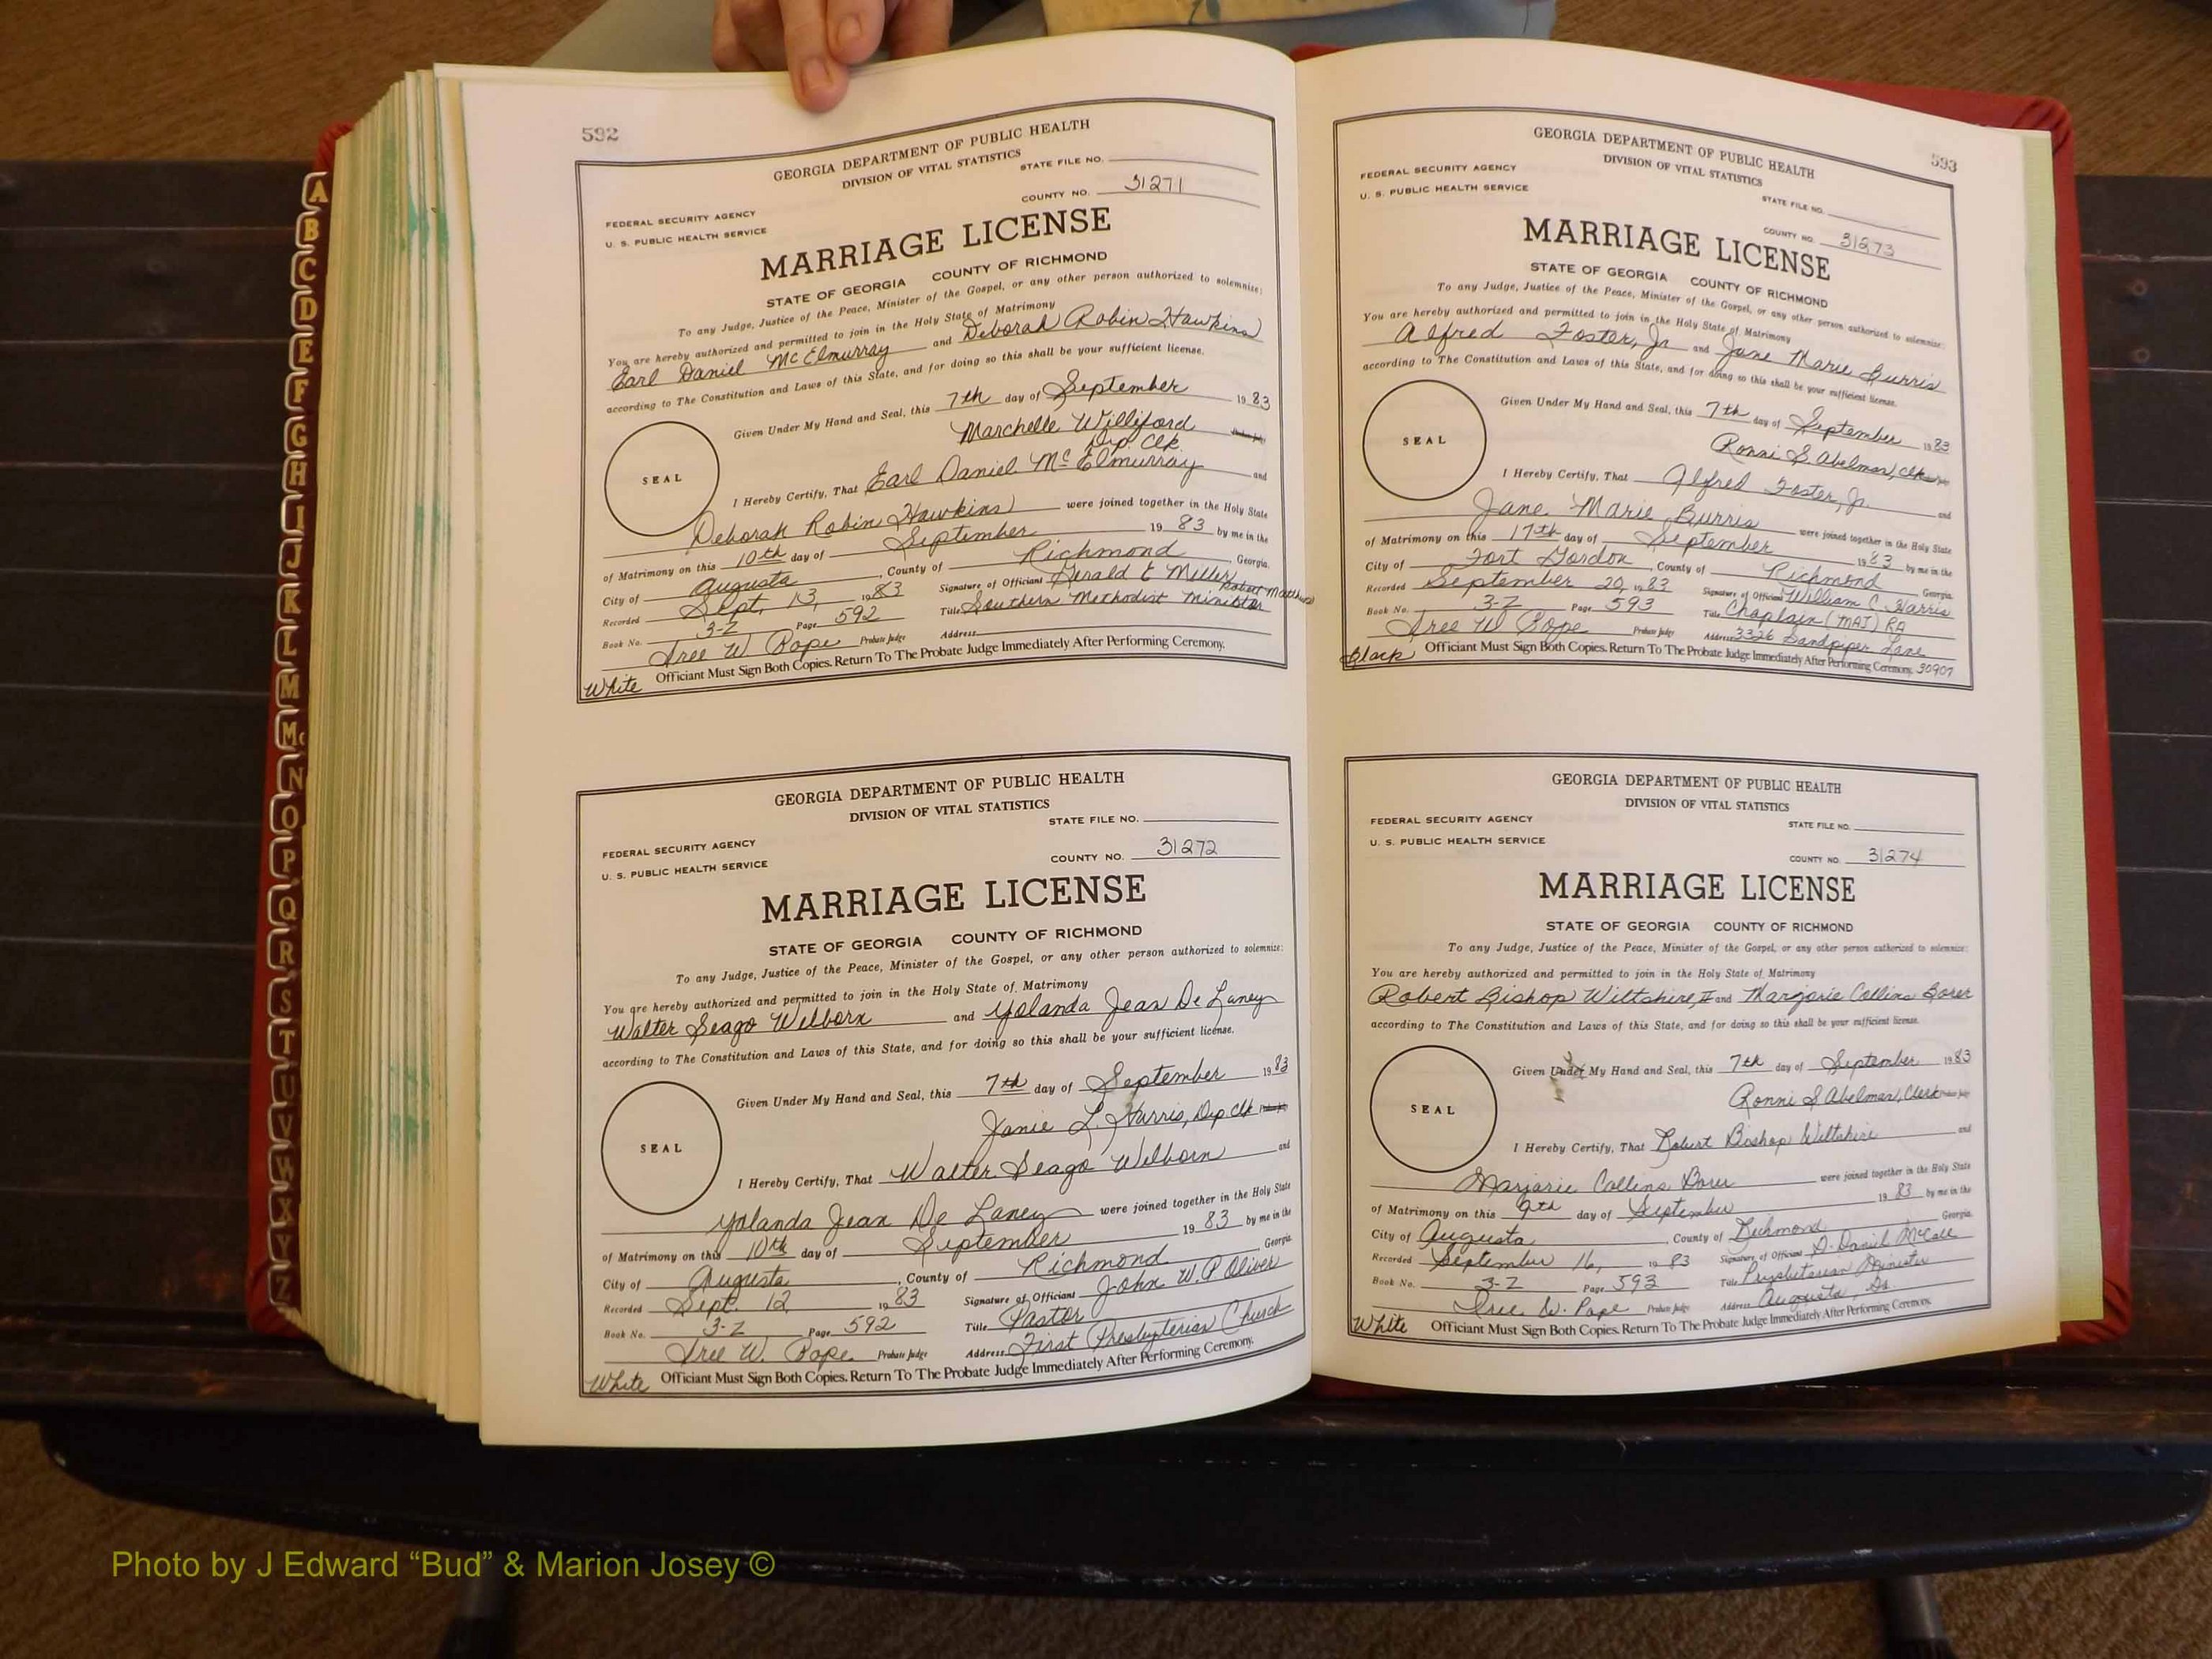 A
B
C
D
E
F
G
H
I
J
K
L
M
Mc
N
O
P
Q
R
S
T
U
V
W
X
Y
Z
592
GEORGIA DEPARTMENT OF PUBLIC HEALTH
DIVISION OF VITAL STATISTICS
STATE FILE NO.
COUNTY NO. 31271
FEDERAL SECURITY AGENCY
U. S. PUBLIC HEALTH SERVICE
MARRIAGE LICENSE
STATE OF GEORGIA COUNTY OF RICHMOND
To any Judge, Justice of the Peace, Minister of the Gospel, or any other person authorized to solemnize:
You are hereby authorized and permitted to join in the Holy State of Matrimony
Earl Daniel McElmurray and Deborah Robin Hawkins
according to The Constitution and Laws of this State, and for doing so this shall be your sufficient license.
Given Under My Hand and Seal, this 7th day of September 1983
Marchelle Williford
Dep Clk
SEAL
I Hereby Certify, That Earl Daniel McElmurray and
Deborah Robin Hawkins were joined together in the Holy State
of Matrimony on this 10th day of September 1983 by me in the
City of Augusta, County of Richmond, Georgia.
Recorded Sept. 13, 1983 Signature of Officiant Gerald E Miller
Book No. 3-Z Page 592 Title Southern Methodist Minister
Address
Probate Judge
Officiant Must Sign Both Copies. Return To The Probate Judge Immediately After Performing Ceremony.
White
GEORGIA DEPARTMENT OF PUBLIC HEALTH
DIVISION OF VITAL STATISTICS
STATE FILE NO.
FEDERAL SECURITY AGENCY
U. S. PUBLIC HEALTH SERVICE
COUNTY NO. 31272
MARRIAGE LICENSE
STATE OF GEORGIA COUNTY OF RICHMOND
To any Judge, Justice of the Peace, Minister of the Gospel, or any other person authorized to solemnize:
You are hereby authorized and permitted to join in the Holy State of Matrimony
Walter Seago Welborn and Yolanda Jean De Laney
according to The Constitution and Laws of this State, and for doing so this shall be your sufficient license.
Given Under My Hand and Seal, this 7th day of September 1983
Janie L. Harris, Dep Clk
SEAL
I Hereby Certify, That Walter Seago Welborn and
Yolanda Jean De Laney were joined together in the Holy State
of Matrimony on this 10th day of September 1983 by me in the
City of Augusta, County of Richmond, Georgia.
Recorded Sept. 12 1983 Signature of Officiant John W. P Oliver
Book No. 3-Z Page 592 Title Pastor
W. Pope Probate Judge Address First Presbyterian Church
Officiant Must Sign Both Copies. Return To The Probate Judge Immediately After Performing Ceremony.
White
593
GEORGIA DEPARTMENT OF PUBLIC HEALTH
DIVISION OF VITAL STATISTICS
FEDERAL SECURITY AGENCY
U. S. PUBLIC HEALTH SERVICE
STATE FILE NO.
COUNTY NO. 31273
MARRIAGE LICENSE
STATE OF GEORGIA COUNTY OF RICHMOND
To any Judge, Justice of the Peace, Minister of the Gospel, or any other person authorized to solemnize:
You are hereby authorized and permitted to join in the Holy State of Matrimony
Alfred Foster, Jr and Jane Marie Burris
according to The Constitution and Laws of this State, and for doing so this shall be your sufficient license.
Given Under My Hand and Seal, this 7th day of September 1983
Ronni S. Abelman, Clk
SEAL
I Hereby Certify, That Alfred Foster, Jr. and
Jane Marie Burris were joined together in the Holy State
of Matrimony on this 17th day of September 1983 by me in the
City of Fort Gordon, County of Richmond Georgia
Recorded September 20, 1983 Signature of Officiant William C. Harris
Book No. 3-Z Page 593 Title Chaplain (MAJ) RA
W Pope Probate Judge Address 3326 Sandpiper Lane
Officiant Must Sign Both Copies. Return To The Probate Judge Immediately After Performing Ceremony. 30907
Black
GEORGIA DEPARTMENT OF PUBLIC HEALTH
DIVISION OF VITAL STATISTICS
FEDERAL SECURITY AGENCY
U. S. PUBLIC HEALTH SERVICE
STATE FILE NO.
COUNTY NO. 31274
MARRIAGE LICENSE
STATE OF GEORGIA COUNTY OF RICHMOND
To any Judge, Justice of the Peace, Minister of the Gospel, or any other person authorized to solemnize:
You are hereby authorized and permitted to join in the Holy State of Matrimony
Robert Bishop Wiltshire, II and Marjorie Collins Borer
according to The Constitution and Laws of this State, and for doing so this shall be your sufficient license.
Given Under My Hand and Seal, this 7th day of September 1983
Ronni S Abelman, Clerk
SEAL
I Hereby Certify, That Robert Bishop Wiltshire and
Marjorie Collins Borer were joined together in the Holy State
of Matrimony on this 9th day of September 1983 by me in the
City of Augusta, County of Richmond Georgia
Recorded September 16, 1983 Signature of Officiant D. Daniel McCall
Book No. 3-Z Page 593 Title Presbyterian Minister
W. Pope Probate Judge Address Augusta, Ga.
Officiant Must Sign Both Copies. Return To The Probate Judge Immediately After Performing Ceremony.
White
Photo by J Edward “Bud” & Marion Josey ©